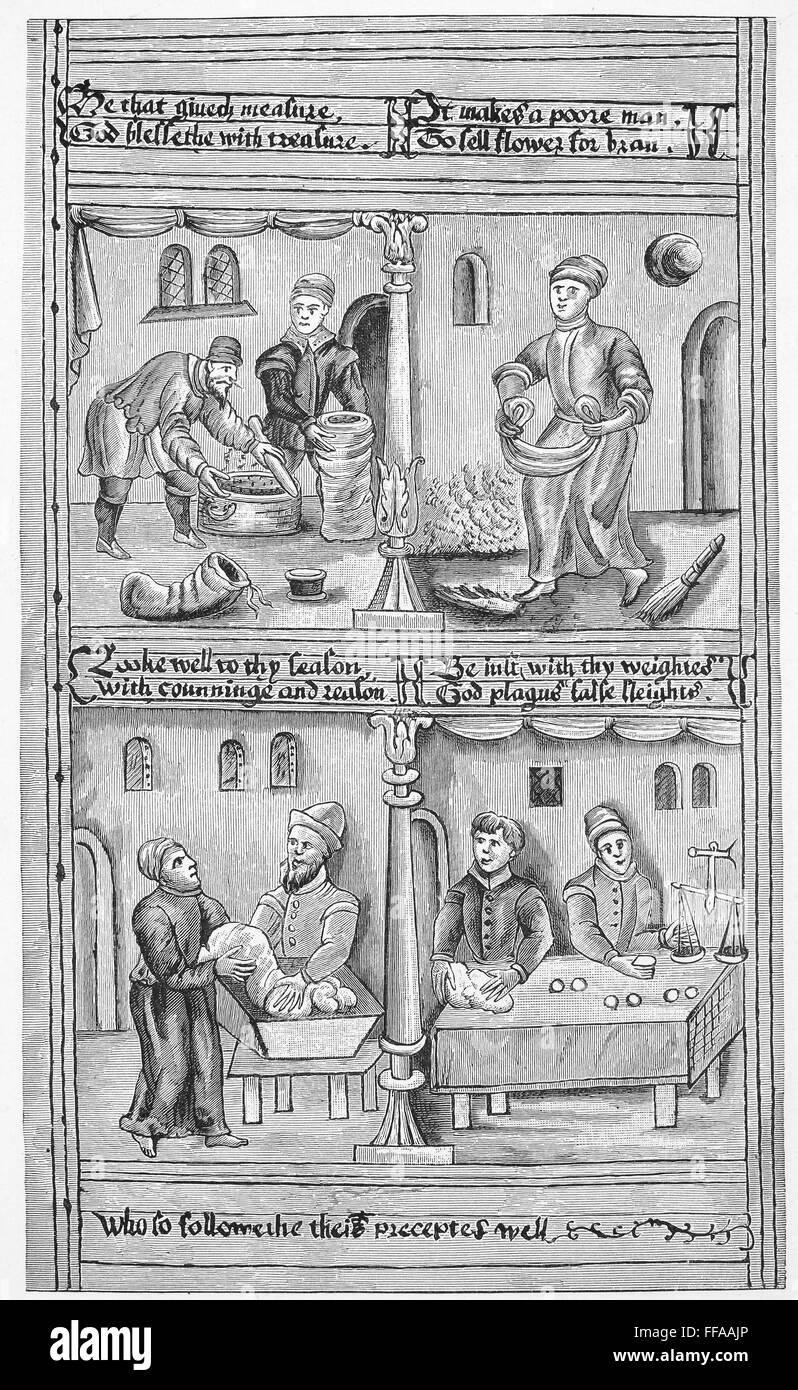 He that giueth measure,
God blessethe with treasure.
It makes a poore man,
To sell flower for bran.
Looke well to thy season,
with counninge and reason
Be iust with thy weightes
God plagus false sleights.
Who so followethe theis preceptes well
alamy
Image ID: FFAAJP
www.alamy.com